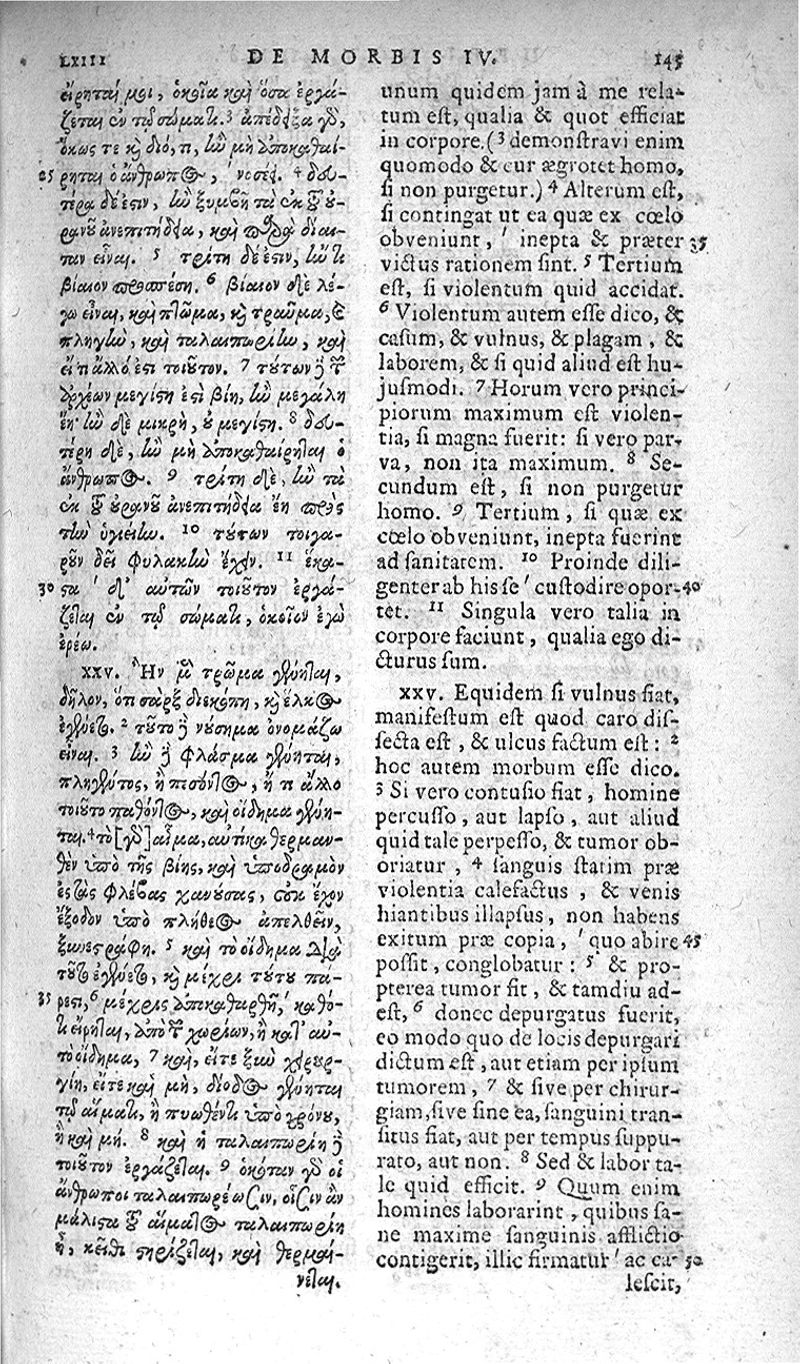 LXIII DE MORBIS IV. 145
εἴρηταί μοι, ὁκοῖα καὶ ὅσα ἐργά-
ζεται ἐν τῷ σώματι. 3 ἀπέδειξα γὰρ,
ὅκως τε καὶ διό, τι, ἢν μὴ ἀποκαθαί-
25 ρηται ὁ ἄνθρωπος, ' νοσέει. 4 δευ-
τέρα δέ ἐστιν, ἢν ξυμβῇ τὰ ἐκ τοῦ οὐ-
ρανοῦ ἀνεπιτήδεια, καὶ παρὰ δίαι-
ταν εἶναι. 5 τρίτη δέ ἐστιν, ἤν τι
βίαιον προσπέσῃ. 6 βίαιον δὲ λέ-
γω εἶναι, καὶ πτῶμα, καὶ τραῦμα, καὶ
πληγὴν, καὶ ταλαιπωρίην, καὶ
εἴ τι ἄλλο ἐστὶ τοιοῦτον. 7 τούτων δὲ τῶν
ἀρχέων μεγίστη ἐστὶ βίη, ἢν μεγάλη
ἔῃ· ἢν δὲ μικρὴ, οὐ μεγίστη. 8 δευ-
τέρη δὲ, ἢν μὴ ἀποκαθαίρηται ὁ
ἄνθρωπος. 9 τρίτη δὲ, ἢν τὰ
ἐκ τοῦ οὐρανοῦ ἀνεπιτήδεια ἔῃ πρὸς
τὴν ὑγιείην. 10 τούτων τοιγα-
ροῦν δεῖ φυλακὴν ἔχειν. 11 ἕκα-
30 στα ' δι' αὐτῶν τοιοῦτον ἐργά-
ζεται ἐν τῷ σώματι, ὁκοῖον ἐγὼ
ἐρέω.
XXV. Ἢν μὲν τρῶμα γένηται,
δῆλον, ὅτι σὰρξ διεκόπη, καὶ ἕλκος
ἐγένετο. 2 τοῦτο δὲ νόσημα ὀνομάζω
εἶναι. 3 ἢν δὲ φλάσμα γένηται,
πληγέντος, ἢ πεσόντος, ἤ τι ἄλλο
τοιοῦτο παθόντος, καὶ οἴδημα γένη-
ται. 4 τὸ [γὰρ] αἷμα, αὐτίκα θερμαν-
θὲν ὑπὸ τῆς βίης, καὶ ὑποδραμὸν
ἐς τὰς φλέβας χανούσας, οὐκ ἔχον
ἔξοδον ὑπὸ πλήθεος ἀπελθεῖν,
ξυνεστράφη. 5 καὶ τὸ οἴδημα διὰ
τοῦτο ἐγένετο, καὶ μέχρι τούτου πά-
35 ρεστι, 6 μέχρις ἀποκαθαρθῇ, ' καθό-
τι εἴρηται, ἀπὸ τῶν χωρίων, ἢ κατ' αὐ-
τὸ οἴδημα, 7 καὶ, εἴτε ξὺν χειρουρ-
γίῃ, εἴτε καὶ μὴ, δίοδος γένηται
τῷ αἵματι, ἢ πυωθέντι ὑπὸ χρόνου,
ἢ καὶ μή. 8 καὶ ἡ ταλαιπωρίη δὲ
τοιοῦτον ἐργάζεται. 9 ὁκόταν γὰρ οἱ
ἄνθρωποι ταλαιπωρέωσιν, οἷσιν ἂν
μάλιστα τοῦ αἵματος ταλαιπωρίη
ᾖ, κεῖθι στηρίζεται, καὶ θερμαί-
νεται.
unum quidem jam à me rela-
tum est, qualia & quot efficiat
in corpore. (3 demonstravi enim
quomodo & cur ægrotet homo,
si non purgetur.) 4 Alterum est,
si contingat ut ea quæ ex cœlo
obveniunt, ' inepta & præter 35
victus rationem sint. 5 Tertium
est, si violentum quid accidat.
6 Violentum autem esse dico, &
casum, & vulnus, & plagam, &
laborem, & si quid aliud est hu-
jusmodi. 7 Horum vero princi-
piorum maximum est violen-
tia, si magna fuerit: si vero par-
va, non ita maximum. 8 Se-
cundum est, si non purgetur
homo. 9 Tertium, si quæ ex
cœlo obveniunt, inepta fuerint
ad sanitatem. 10 Proinde dili-
genter ab his se ' custodire opor- 40
tet. 11 Singula vero talia in
corpore faciunt, qualia ego di-
cturus sum.
XXV. Equidem si vulnus fiat,
manifestum est quod caro dis-
secta est, & ulcus factum est: 2
hoc autem morbum esse dico.
3 Si vero contusio fiat, homine
percusso, aut lapso, aut aliud
quid tale perpesso, & tumor ob-
oriatur, 4 sanguis statim præ
violentia calefactus, & venis
hiantibus illapsus, non habens
exitum præ copia, ' quo abire 45
possit, conglobatur: 5 & pro-
pterea tumor fit, & tamdiu ad-
est, 6 donec depurgatus fuerit,
eo modo quo de locis depurgari
dictum est, aut etiam per ipsum
tumorem, 7 & sive per chirur-
giam, sive sine ea, sanguini tran-
situs fiat, aut per tempus suppu-
rato, aut non. 8 Sed & labor ta-
le quid efficit. 9 Quum enim
homines laborarint, quibus sa-
ne maxime sanguinis afflictio
contigerit, illic firmatur ' ac ca- 50
lescit,